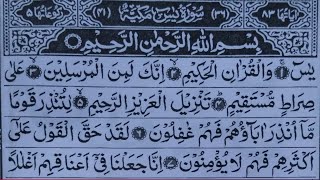 اٰيَاتُهَا ٨٣ (٣٦) سُوْرَةُ يٰسٓ مَكِّيَّةٌ (٤١) رُكُوْعَاتُهَا ٥
بِسْمِ اللّٰهِ الرَّحْمٰنِ الرَّحِيْمِ
يٰسٓ ۝١ وَالْقُرْاٰنِ الْحَكِيْمِ ۝٢ اِنَّكَ لَمِنَ الْمُرْسَلِيْنَ ۝٣ عَلٰى
صِرَاطٍ مُّسْتَقِيْمٍ ۝٤ تَنْزِيْلَ الْعَزِيْزِ الرَّحِيْمِ ۝٥ لِتُنْذِرَ قَوْمًا
مَّاۤ اُنْذِرَ اٰبَآؤُهُمْ فَهُمْ غٰفِلُوْنَ ۝٦ لَقَدْ حَقَّ الْقَوْلُ عَلٰۤى
اَكْثَرِهِمْ فَهُمْ لَا يُؤْمِنُوْنَ ۝٧ اِنَّا جَعَلْنَا فِيْۤ اَعْنَاقِهِمْ اَغْلٰلًا